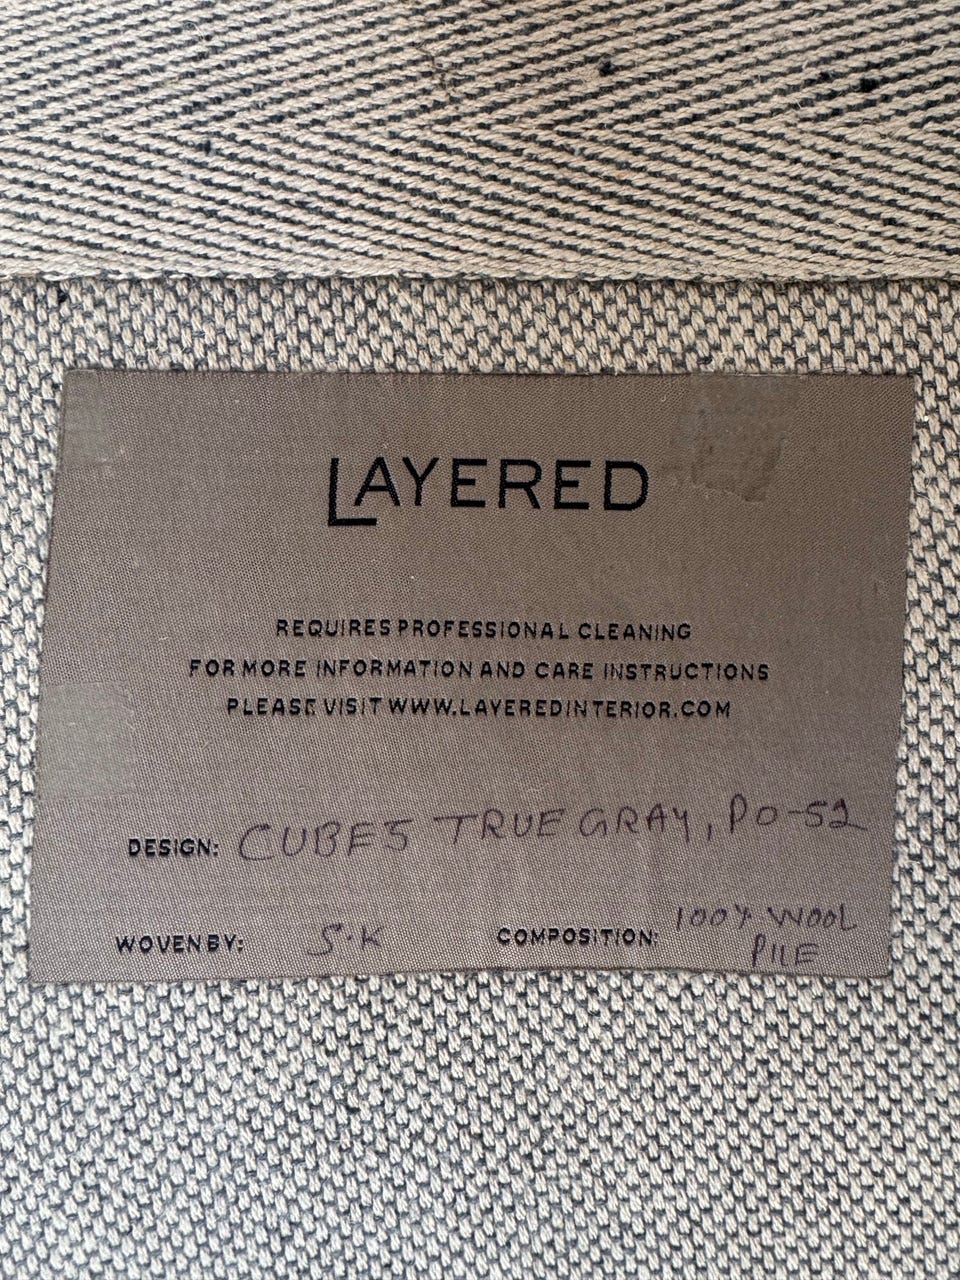 LAYERED
REQUIRES PROFESSIONAL CLEANING
FOR MORE INFORMATION AND CARE INSTRUCTIONS
PLEASE VISIT WWW.LAYEREDINTERIOR.COM
DESIGN: CUBES TRUE GRAY, PO-52
WOVEN BY: S.K COMPOSITION: 100% WOOL
PILE